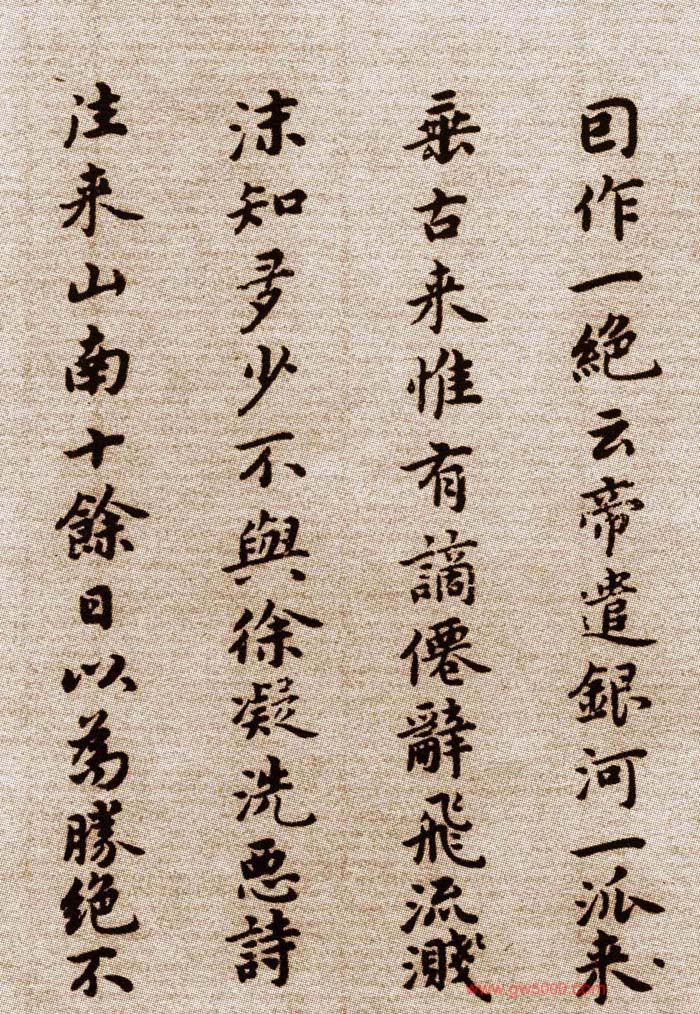 囙作一絶云帝遣銀河一派来
垂古来惟有謫僊辭飛流濺
沫知多少不與徐凝洗悪詩
往来山南十餘日以為勝絶不
www.gw5000.com